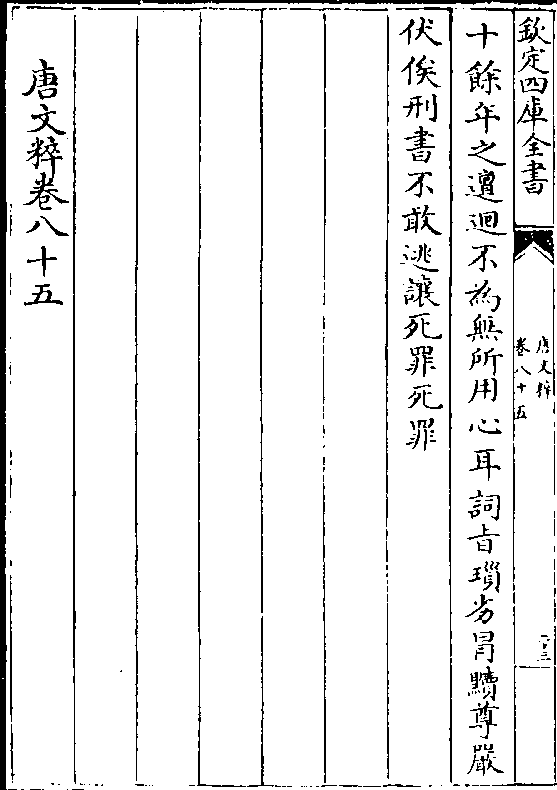 欽定四庫全書
唐文粹
卷八十五
二十三
十餘年之邅迴不為無所用心耳詞旨瑣劣冒黷尊嚴
伏俟刑書不敢逃讓死罪死罪
唐文粹卷八十五